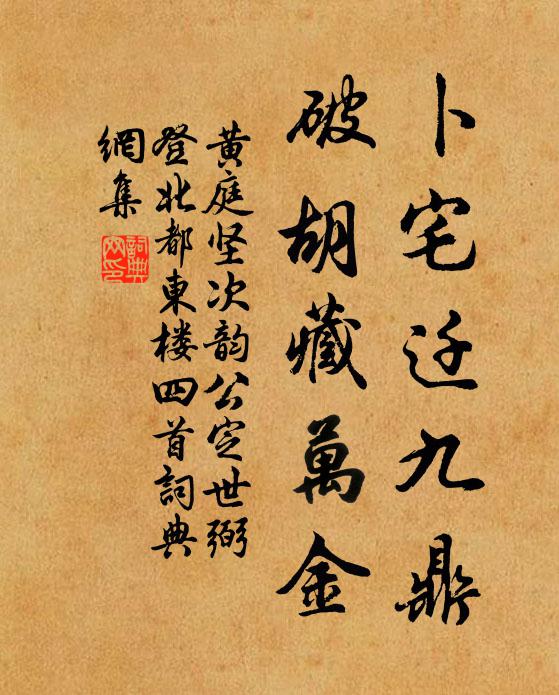 卜宅迁九鼎
破胡藏萬金
黄庭坚次韵公定世弼
登北都東楼四首詞典
網集
詞典
网印